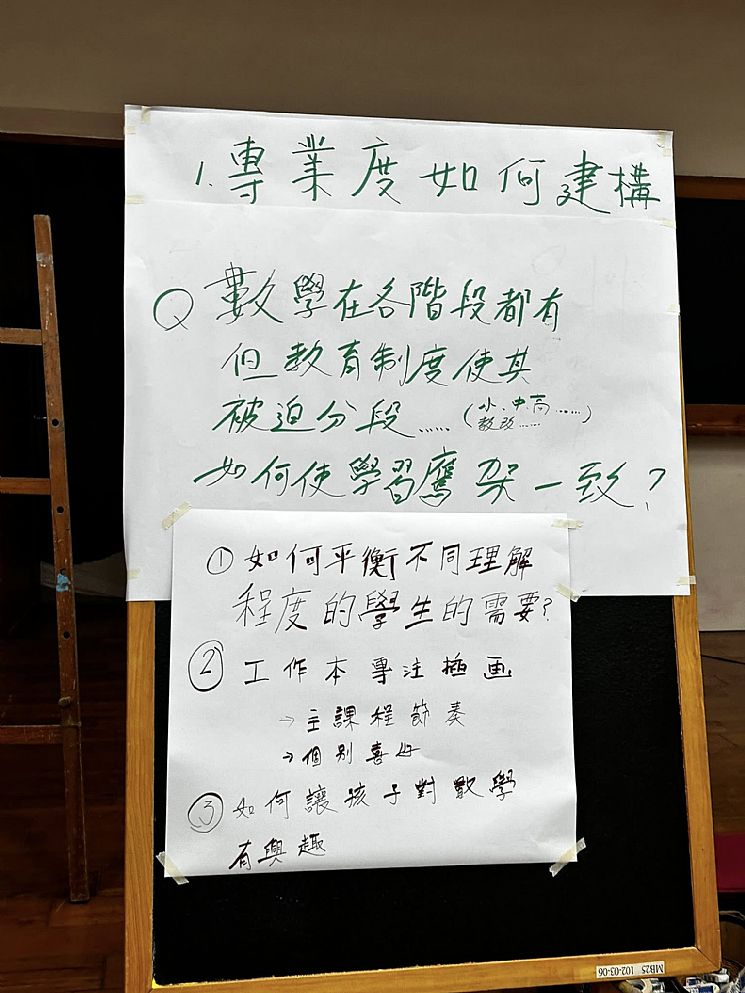 1. 專業度如何建構
Q 數學在各階段都有
但教育制度使其
被迫分段…… (小、中、高……)
教改……
如何使學習鷹架一致?
① 如何平衡不同理解
程度的學生的需要?
② 工作本專注插画
→ 主課程節奏
→ 個別喜好
③ 如何讓孩子對數學
有興趣
MB25 102-03-06